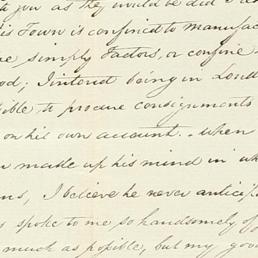 to you as they would be did I
is Town is confined to Manufac
e simply Factors, or confine
od; I intend being in Lond
sible to procure consignments
on his own account. - when
n made up his mind in wh
ns, I believe he never anticip
s spoke to me so handsomely of
much as possible, but my goo